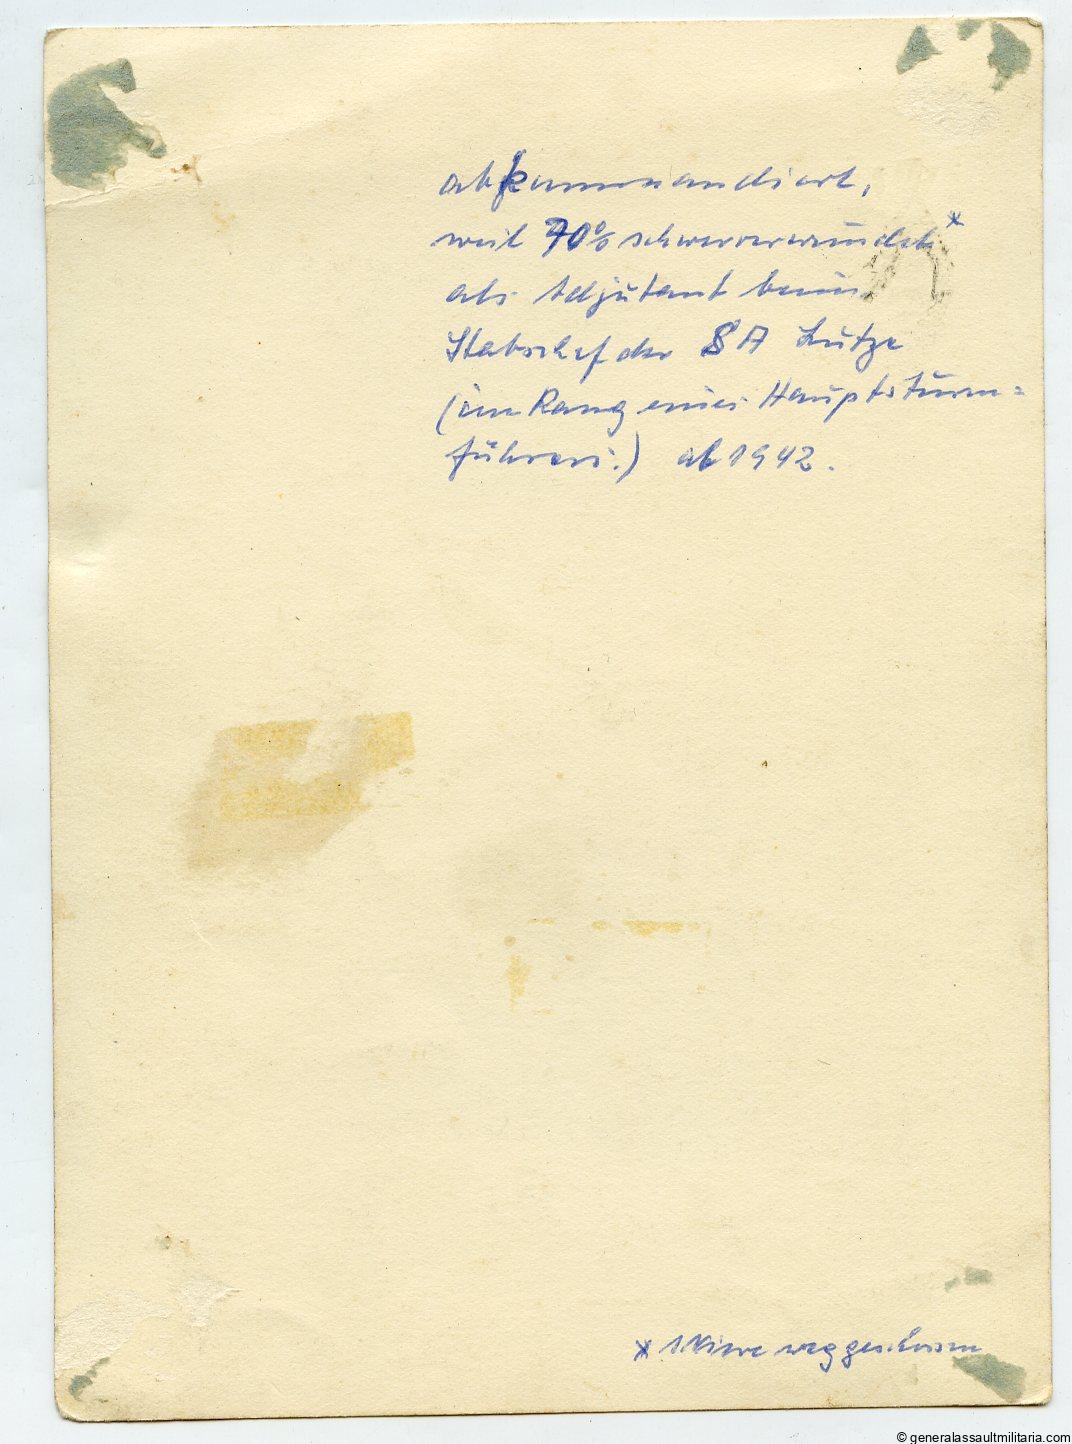 abkommandiert,
weil 70% schwerverwundet *
als Adjutant beim
Stabschef der SA Lutze
(im Rang eines Hauptsturm=
führers.) ab 1942.
* 1 Niere weggeschossen
© generalassaultmilitaria.com